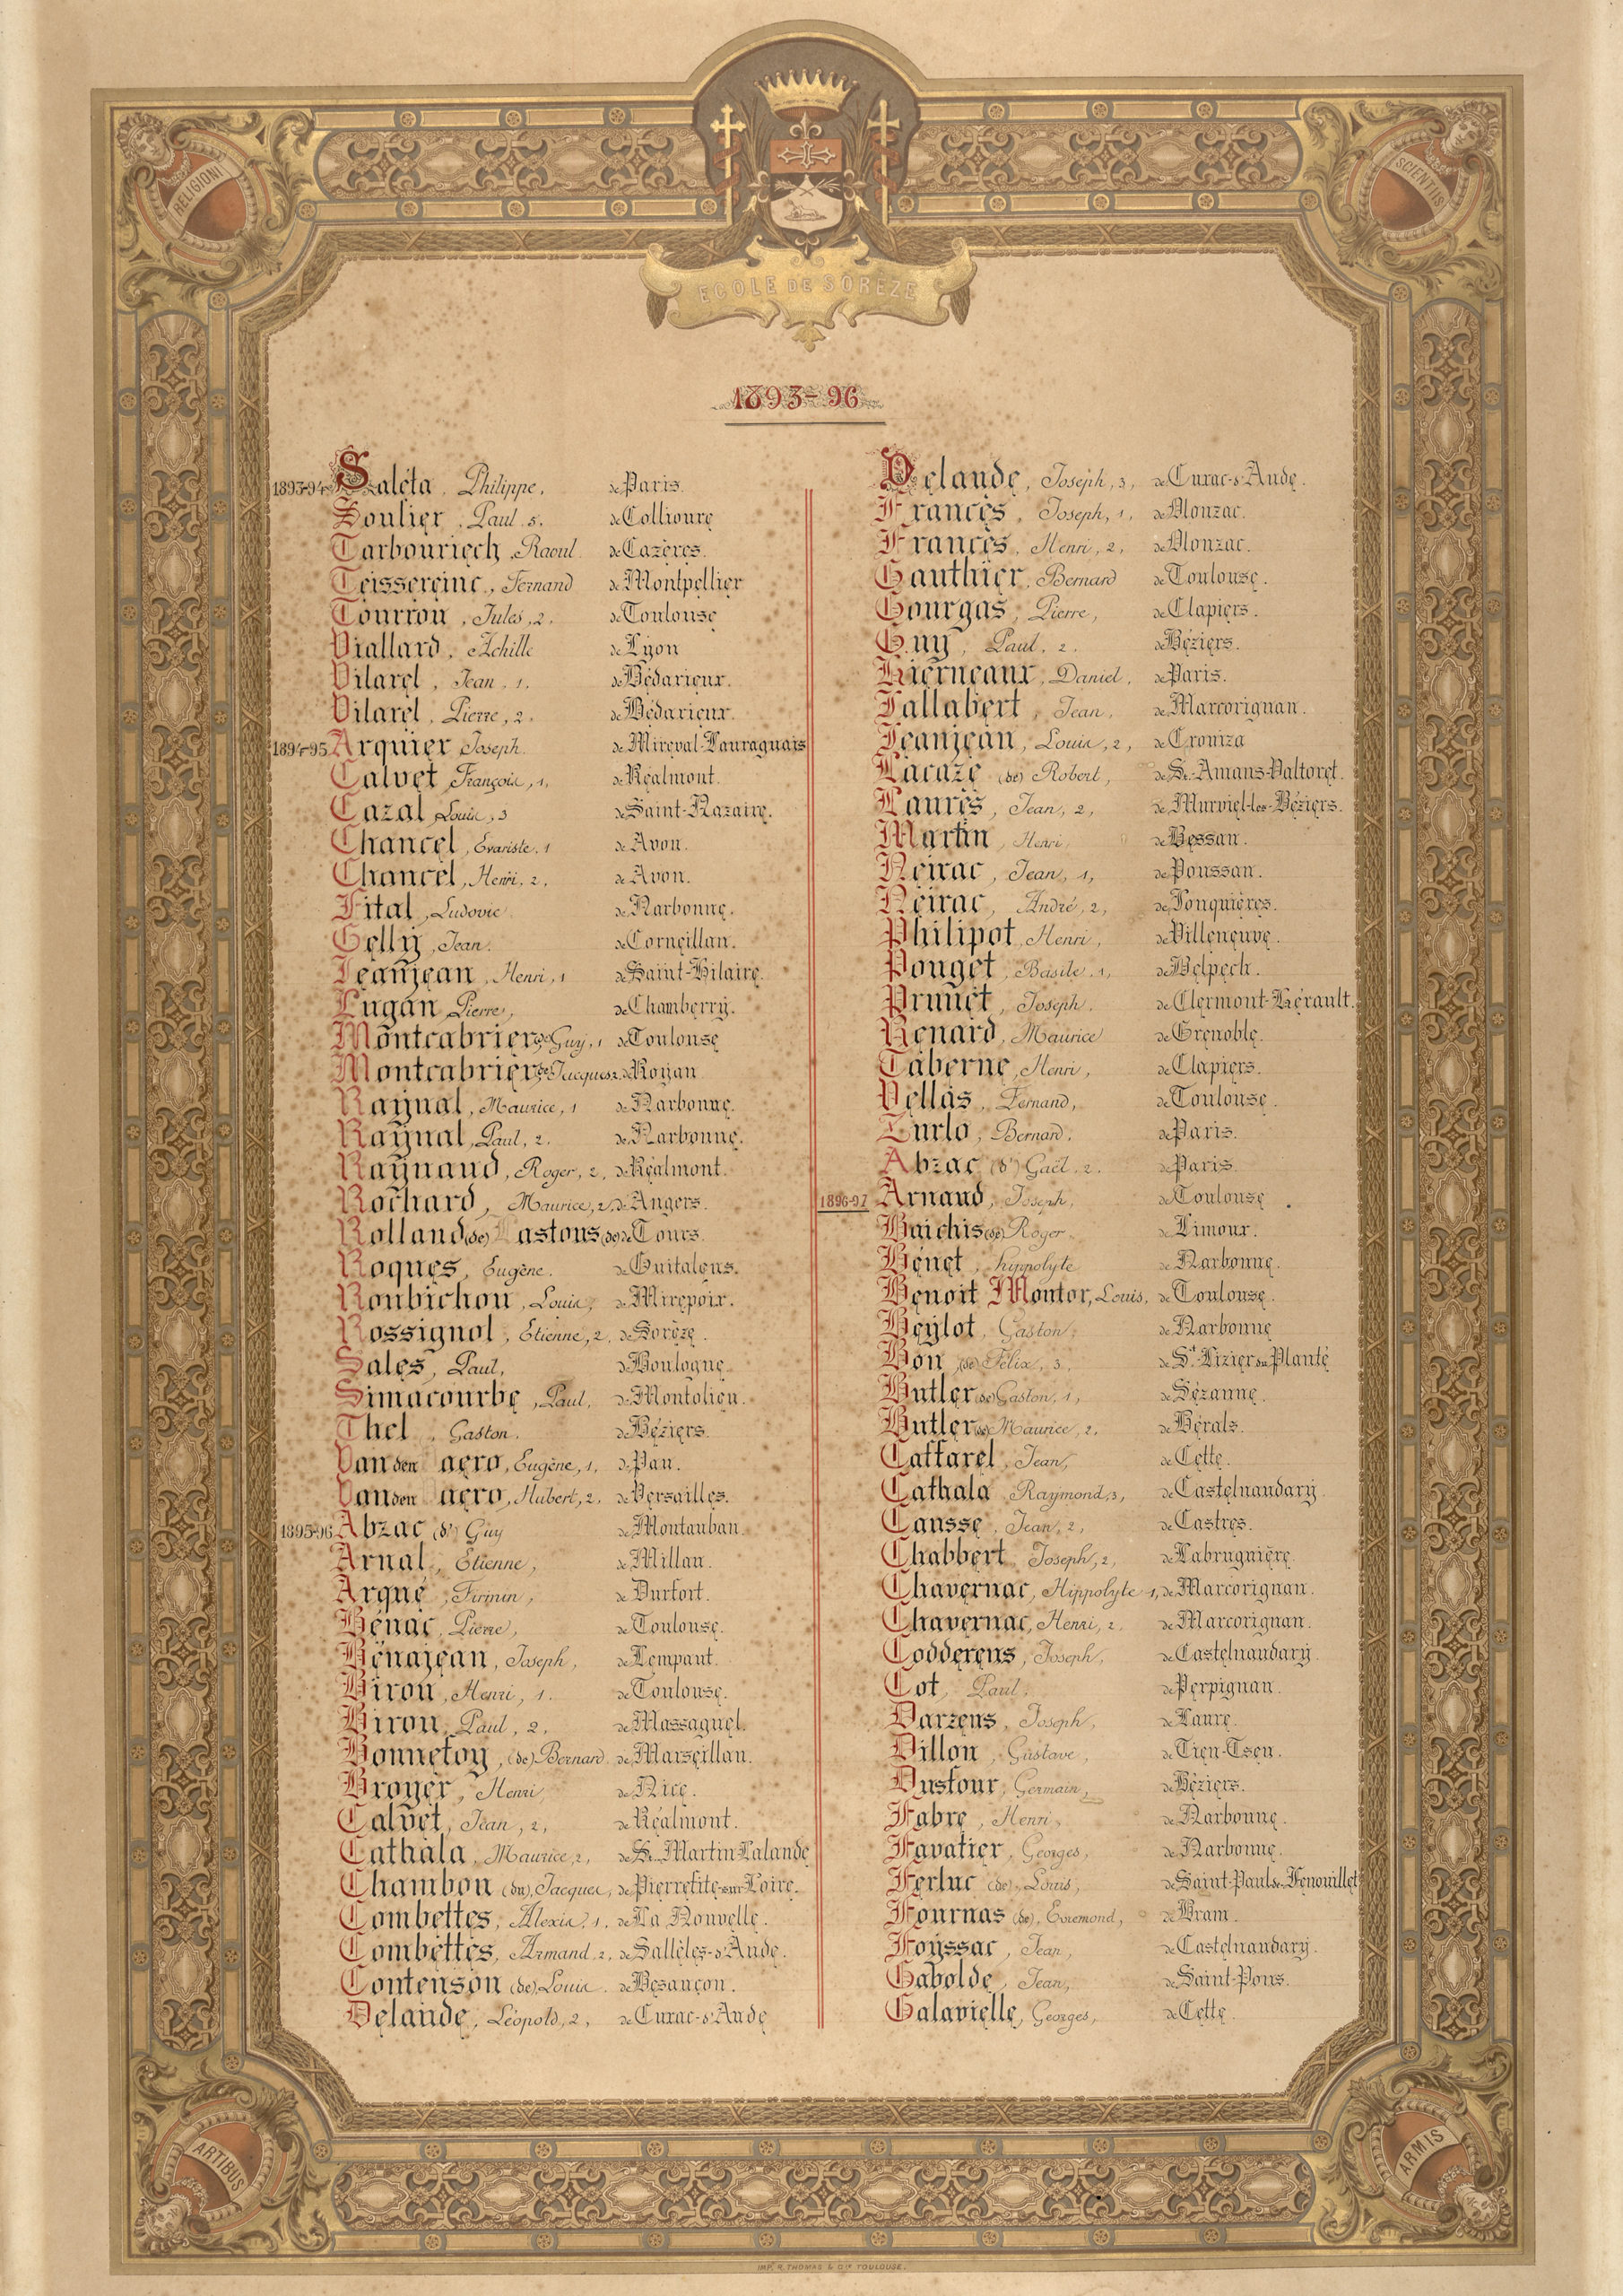 RELIGIONI
SCIENTIIS
ECOLE DE SORÈZE
1893-96
1893-94 Saléta, Philippe, de Paris.
Soulier, Paul, 5, de Collioure
Tarbouriech, Raoul de Cazères.
Teissereinc, Fernand de Montpellier
Tourrou, Jules, 2, de Toulouse
Viallard, Achille de Lyon
Vilarel, Jean, 1, de Bédarieux.
Vilarel, Pierre, 2, de Bédarieux.
1894-95 Arquier Joseph de Mireval-Lauraguais
Calvet, François, 1, de Réalmont.
Cazal, Louis, 3 de Saint-Nazaire.
Chancel, Evariste, 1 de Avon.
Chancel, Henri, 2, de Avon.
Fital, Ludovic de Narbonne.
Gelly, Jean. de Corneillan.
Jeanjean, Henri, 1 de Saint-Hilaire.
Lugan Pierre, de Chamberry.
Montcabrier (de) Guy, 1 de Toulouse
Montcabrier (de) Jacques 2, de Royan
Raynal, Maurice, 1 de Narbonne.
Raynal, Paul, 2. de Narbonne.
Raynaud, Roger, 2, de Réalmont.
Rochard, Maurice, 2, de Angers.
Rolland (de) Lastous (de) de Tours.
Roques, Eugène. de Guitalens.
Roubichou, Louis, de Mirepoix.
Rossignol, Etienne, 2, de Sorèze.
Sales, Paul, de Boulogne.
Simacourbe, Paul, de Montolieu.
Thel, Gaston. de Béziers.
Van den aero, Eugène, 1, de Pau.
Van den aero, Hubert, 2, de Versailles.
1895-96 Abzac (d') Guy de Montauban.
Arnal, Etienne, de Millau.
Arqué, Firmin, de Durfort.
Bénac, Pierre, de Toulouse.
Bénajean, Joseph, de Lempaut.
Biron, Henri, 1. de Toulouse.
Biron, Paul, 2, de Massaguel.
Bonnefoy, (de) Bernard de Marseillan.
Broyer, Henri, de Nice.
Calvet, Jean, 2, de Réalmont.
Cathala, Maurice, 2, de St. Martin Lalande
Chambon (du), Jacques, de Pierrefite-sur-Loire.
Combettes, Alexis, 1, de La Nouvelle.
Combettes, Armand, 2, de Sallèles-d'Aude.
Contenson (de), Louis. de Besançon.
Delaude, Léopold, 2, de Cuxac-d'Aude
Delaude, Joseph, 3, de Cuxac-d'Aude.
Francès, Joseph, 1, de Mouzac.
Francès, Henri, 2, de Mouzac.
Gauthier, Bernard de Toulouse.
Gourgas, Pierre, de Clapiers.
Guy, Paul, 2. de Béziers.
Hierneaux, Daniel, de Paris.
Jallabert, Jean, de Marcorignan.
Jeanjean, Louis, 2, de Croniza
Lacaze (de) Robert, de St.-Amans-Valtoret.
Laurès, Jean, 2, de Murviel-les-Béziers.
Martin, Henri, de Bessan.
Neirac, Jean, 1, de Poussan.
Neirac, André, 2, de Jonquières.
Philipot, Henri, de Villeneuve.
Pouget, Basile, 1, de Belpech.
Prunet, Joseph, de Clermont-Hérault.
Renard, Maurice de Grenoble.
Taberne, Henri, de Clapiers.
Vellas, Fernand, de Toulouse.
Zurlo, Bernard, de Paris.
Abzac (d') Gaël, 2. de Paris
1896-97 Arnaud, Joseph, de Toulouse
Baichis (de) Roger. de Limoux.
Bénet, Hippolyte de Narbonne.
Benoit Montor, Louis, de Toulouse.
Beylot, Gaston, de Narbonne
Bon (de) Félix, 3, de St.-Lizier du Planté
Butler (de) Gaston, 1, de Sézanne.
Butler (de) Maurice, 2, de Bérals.
Caffarel, Jean, de Cette.
Cathala Raymond, 3, de Castelnaudary
Causse, Jean, 2, de Castres.
Chabbert, Joseph, 2, de Labruguière.
Chavernac, Hippolyte 1, de Marcorignan.
Chavernac, Henri, 2, de Marcorignan.
Codderens, Joseph, de Castelnaudary.
Cot, Paul, de Perpignan.
Darzens, Joseph, de Laure.
Dillon, Gustave, de Tien-Tsen.
Dusfour, Germain, de Béziers.
Fabre, Henri, de Narbonne.
Favatier, Georges, de Narbonne.
Ferluc (de), Louis, de Saint-Paul de Fenouillet
Fournas (de), Evremond, de Bram.
Foyssac, Jean, de Castelnaudary.
Gabolde, Jean, de Saint-Pons.
Galavielle, Georges, de Cette.
ARTIBUS
ARMIS
IMP. R. THOMAS & Cie TOULOUSE.